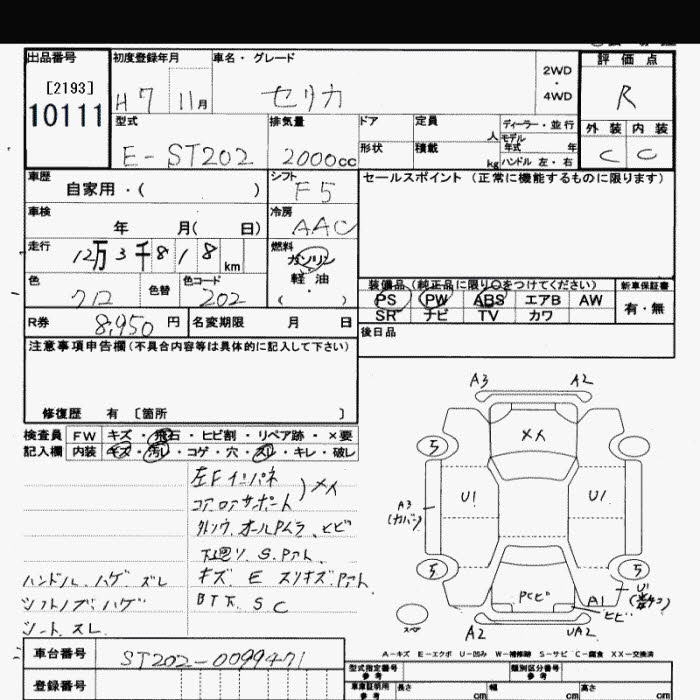 出品番号 初度登録年月 車名・グレード 2WD ・ 4WD 評価点
[2193] H7 11月 セリカ R
10111 型式 排気量 ドア 定員 人 ディーラー・並行 外装 内装
モデル年式 年
E-ST202 2000cc 形状 積載 kg ハンドル 左・右 C C
車歴 シフト セールスポイント (正常に機能するものに限ります)
自家用・( ) F5
車検 冷房
年 月( 日) AAC
走行 燃料
12万3千818km ガソリン
色 色替 色コード 軽油
712 202 ( ・ )
装備品 (純正品に限り○をつけてください) 新車保証書
PS PW ABS エアB AW 有・無
SR ナビ TV カワ
R券 8,950円 名変期限 月 日 後日品
注意事項申告欄 (不具合内容等は具体的に記入して下さい)
修復歴 有 〔箇所 〕
検査員 FW キズ・飛石・ヒビ割・リペア跡・×要
記入欄 内装 キズ・汚レ・コゲ・穴・スレ・キレ・破レ
左Fインパネ
コアロアサポート )メイ
オールPムラ、ヒビ
下廻リ S.Pアト
ハンドル ハゲ スレ キズ E スリキズ.Pアト
シフトノブ ハゲ BT下 S C
シート スレ
A3 A2
メイ
5
U1 U1
A3
(カバー)
5 5
PCヒビ A1 U1
ヒビ
スペア
A2 UA2
A-キズ E-エクボ U-凹み W-補修跡 S-サビ C-腐食 XX-交換済
車台番号 ST202-0099471
型式指定番号 類別区分番号
登録番号 車庫証明用参考 長さ cm 幅 cm 高さ cm